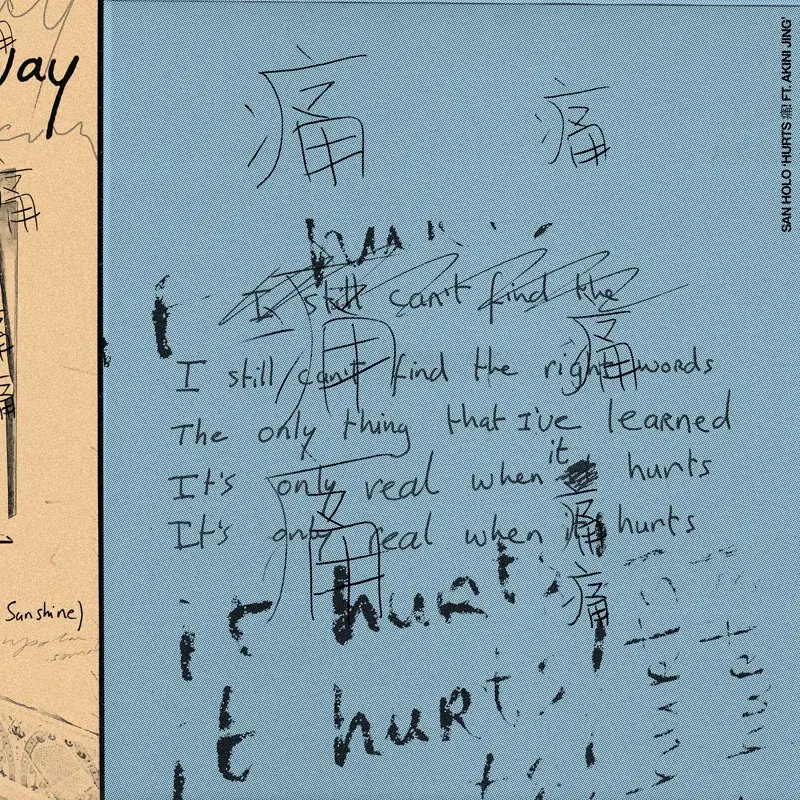 Jay
痛
痛
Sunshine)
痛 痛
I still can't find the
痛 痛
I still can't find the right words
The only thing that I've learned
It's only real when it hurts
It's only real when it hurts
痛
痛
痛
it hurts
it hurts
SAN HOLO 'HURTS 痛! FT. AKINI JING'